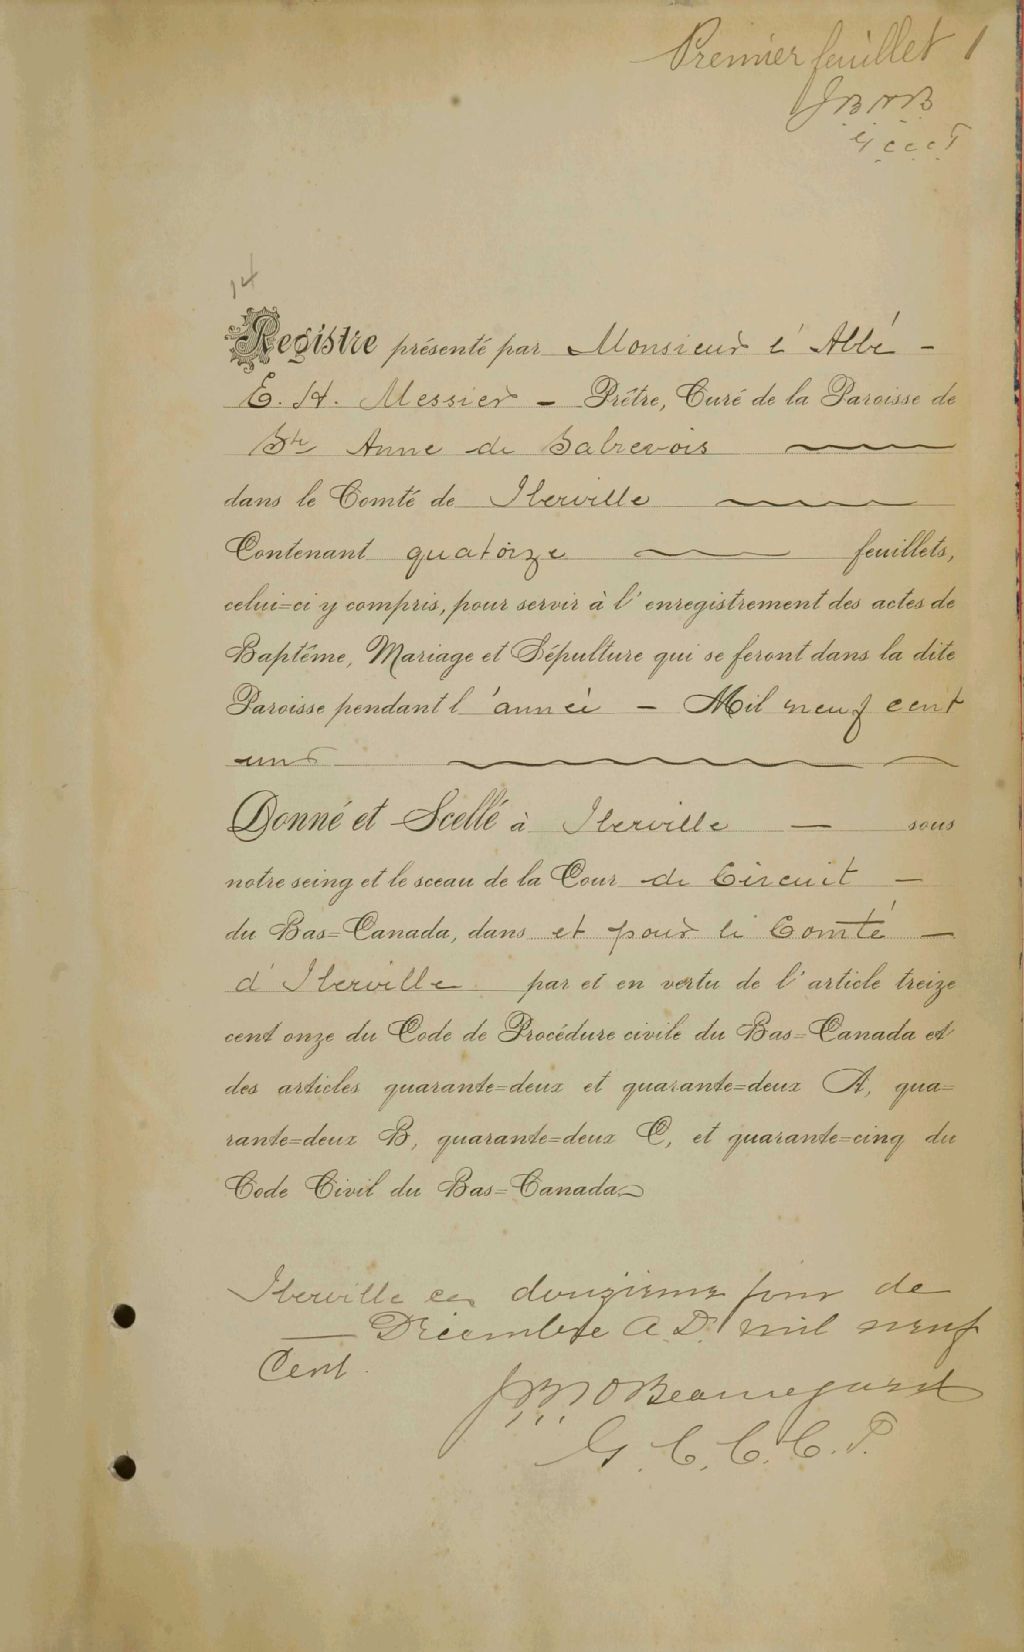 Premier feuillet 1
JBNB
G C C C P
14
Registre présenté par Monsieur l'Abbé -
E. H. Messier - Prêtre, Curé de la Paroisse de
Ste Anne de Sabrevois
dans le Comté de Iberville
Contenant quatorze feuillets,
celui=ci y compris, pour servir à l'enregistrement des actes de
Baptême, Mariage et Sépulture qui se feront dans la dite
Paroisse pendant l'année - Mil neuf cent
un
Donné et Scellé à Iberville — sous
notre seing et le sceau de la Cour de Circuit -
du Bas=Canada, dans et pour le Comté -
d'Iberville par et en vertu de l'article treize
cent onze du Code de Procédure civile du Bas=Canada et
des articles quarante=deux et quarante=deux A, qua=
rante=deux B, quarante=deux C, et quarante=cinq du
Code Civil du Bas=Canada.
Iberville ce douzieme jour de
— Décembre A.D. mil neuf
Cent.
Beauregard
G. C. C. C. P.